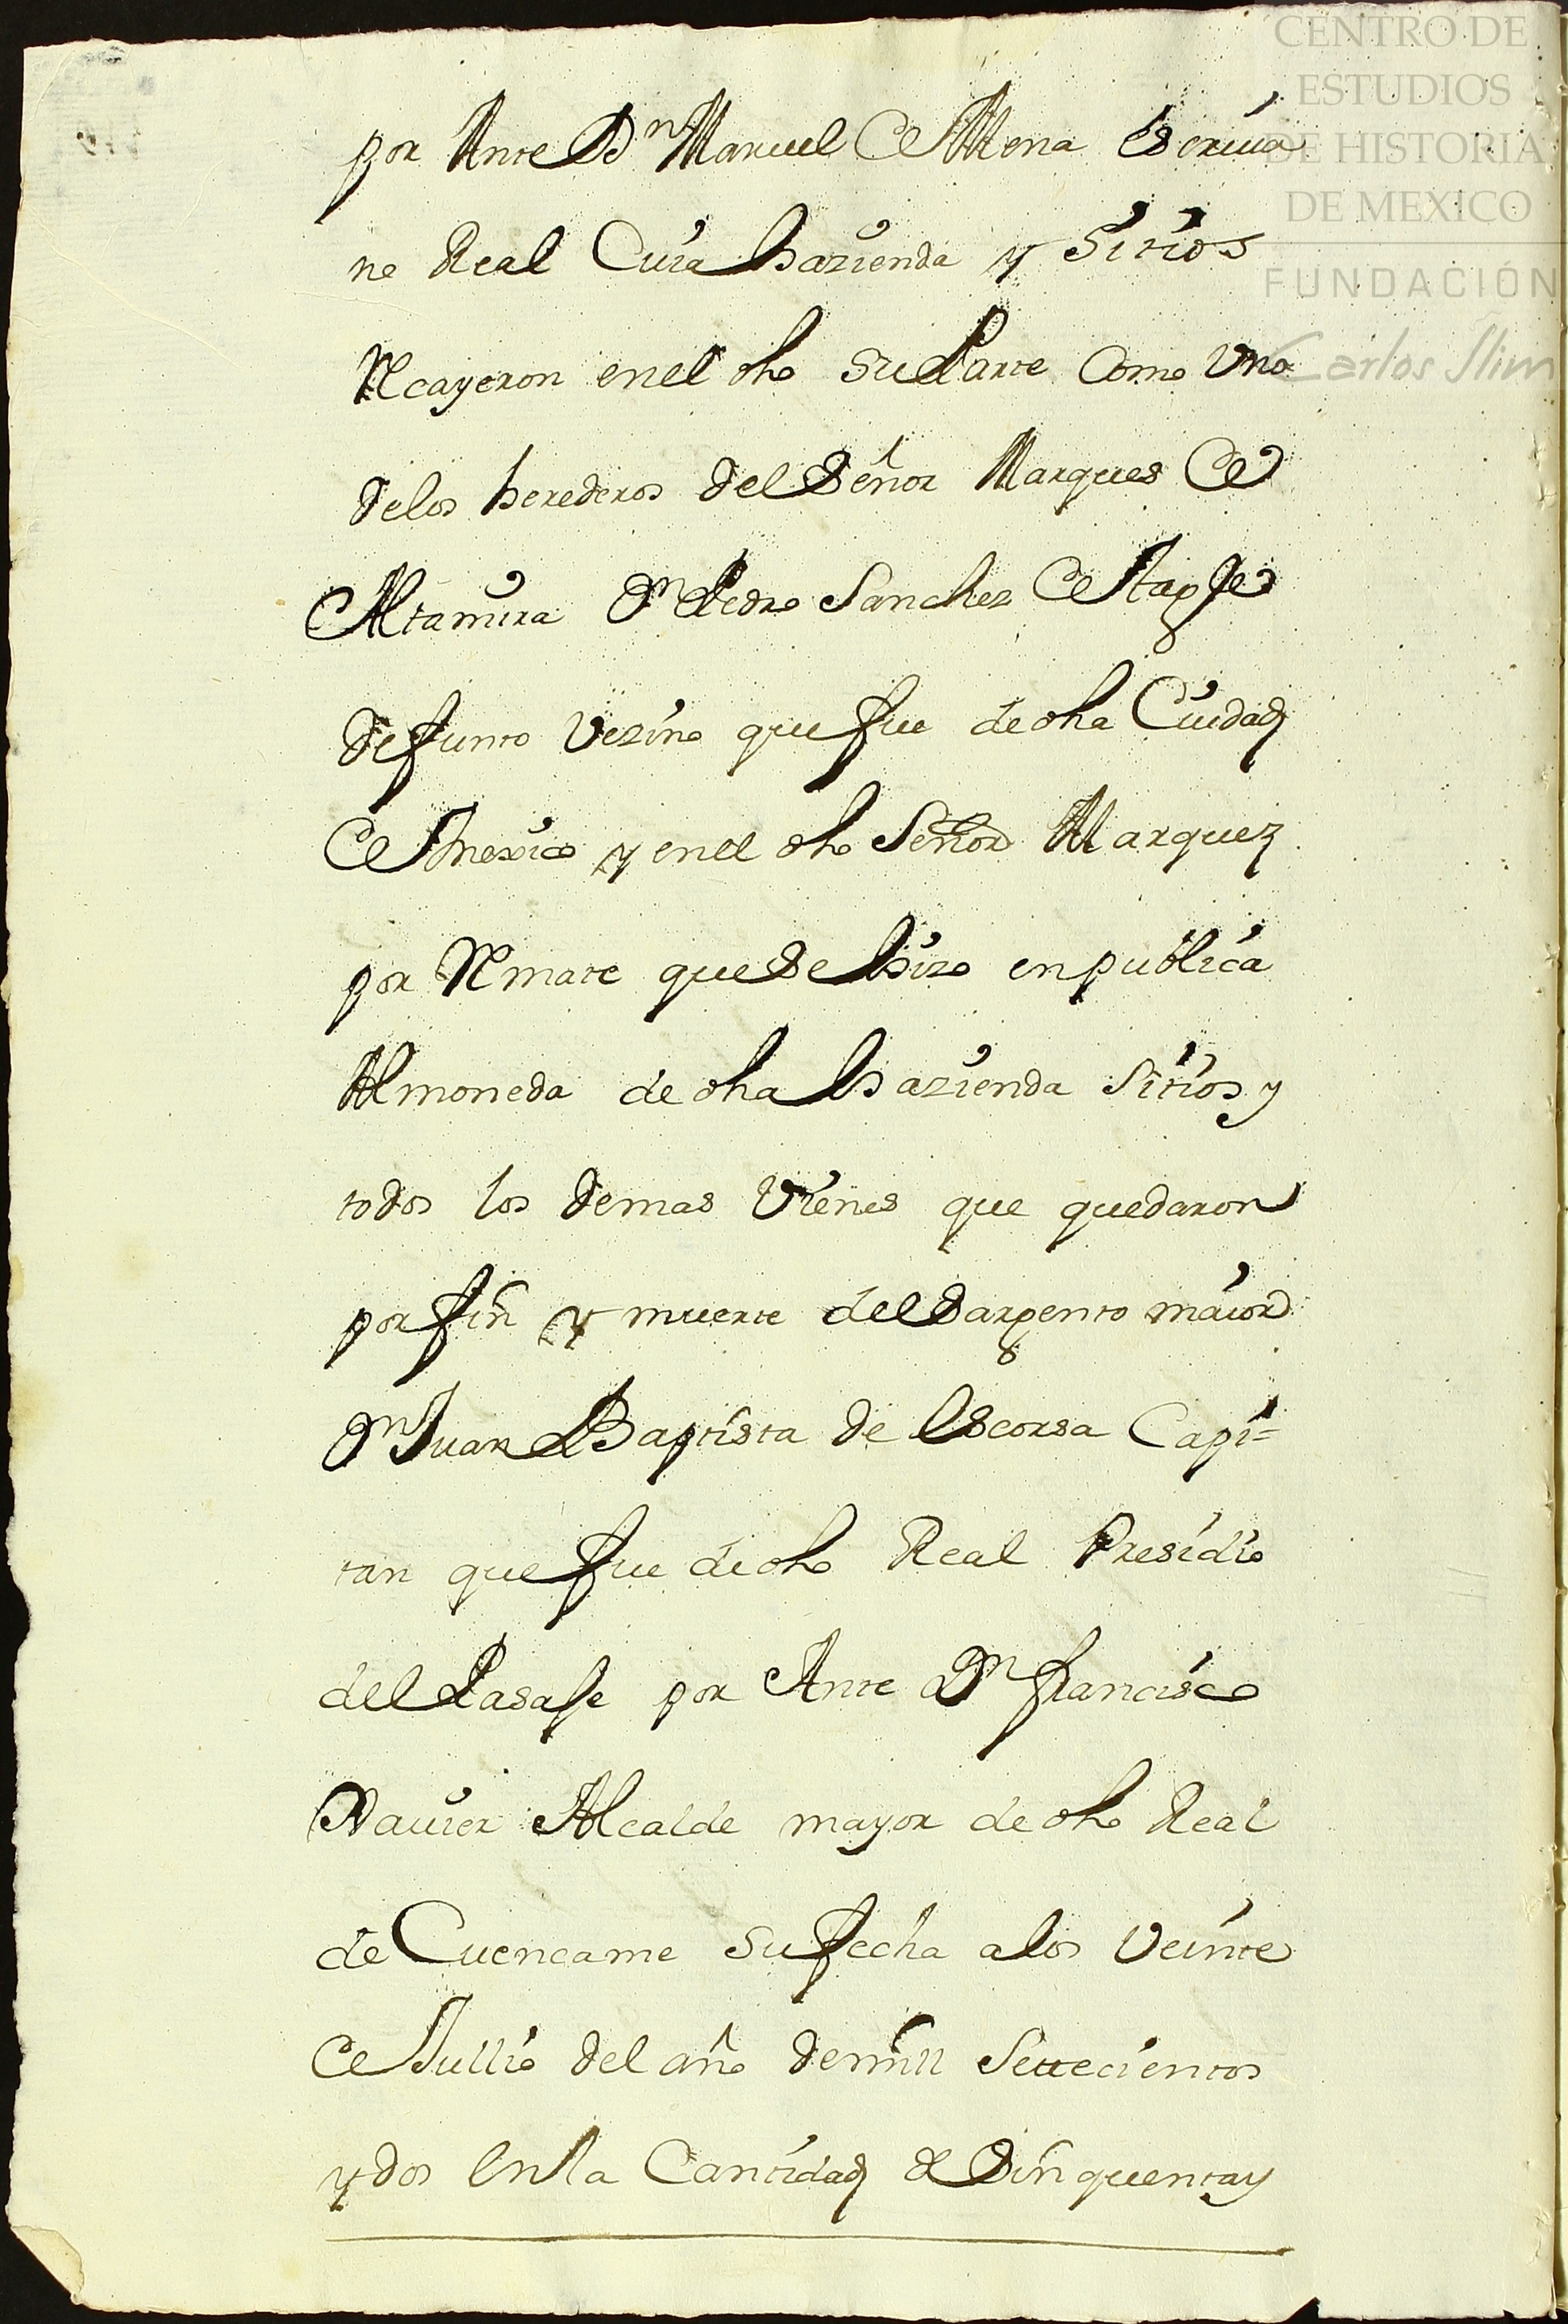 CENTRO DE
ESTUDIOS
DE HISTORIA
DE MEXICO
FUNDACIÓN
Carlos Slim
por Ante Dn Manuel de Mena escriua
no Real Cuia hazienda y Sitios
Recayeron enel dho su Parte Como Vno
delos herederos del Señor Marques de
Altamira Dn Pedro Sanchez de Tagle
defunto Vezino que fue de dha Ciudad
de Mexico y enel dho Señor Marquez
por Remate que se hizo en publica
Almoneda de dha hazienda Sitios y
todos los demas Vienes que quedaron
por fin y muerte del Sargento maior
Dn Juan Baptista de Escorsa Capi=
tan que fue de dho Real Presidio
del Pasaje por Ante Dn Francisco
Xauier Alcalde mayor de dho Real
de Cuencame su fecha alos Veinte
de Jullio del año de mill Settecientos
y dos en la Cantidad de Sinquenta y